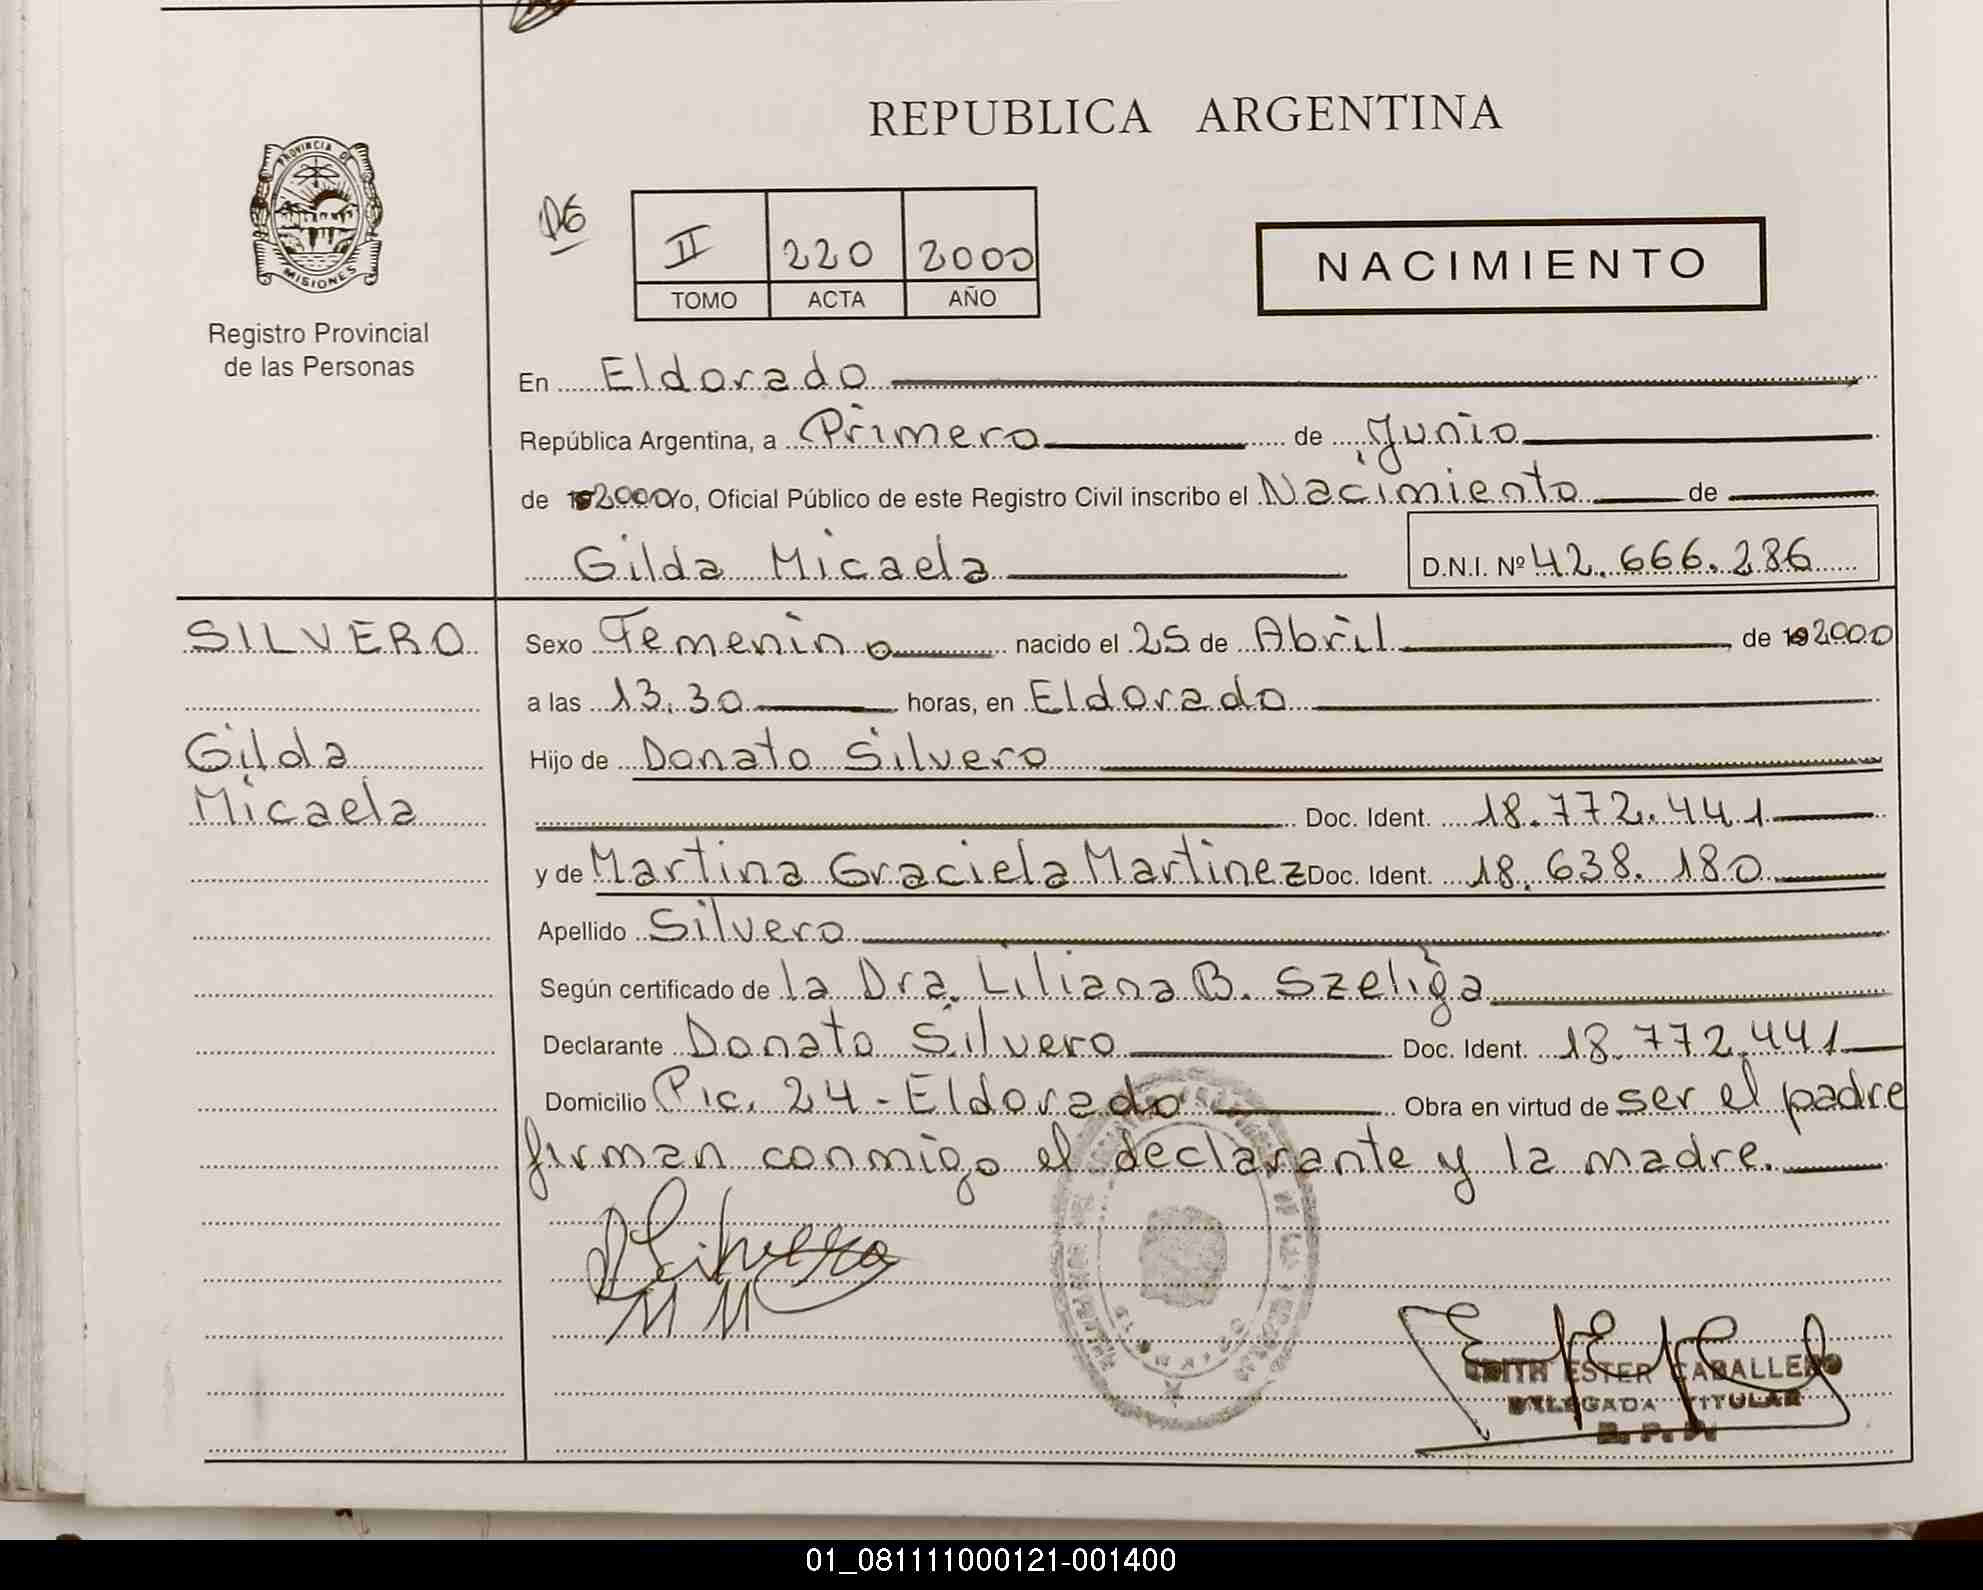 REPUBLICA ARGENTINA
PROVINCIA DE
MISIONES
Registro Provincial
de las Personas
D6
II 220 2000
TOMO ACTA AÑO
NACIMIENTO
En Eldorado
República Argentina, a Primero de Junio
de 2000 yo, Oficial Público de este Registro Civil inscribo el Nacimiento de
Gilda Micaela D.N.I. Nº 42.666.286
SILVERO
Gilda
Micaela
Sexo Femenino nacido el 25 de Abril de 2000
a las 13.30 horas, en Eldorado
Hijo de Donato Silvero
Doc. Ident. 18.772.441
y de Martina Graciela Martinez Doc. Ident. 18.638.180
Apellido Silvero
Según certificado de la Dra. Liliana B. Szeliga
Declarante Donato Silvero Doc. Ident. 18.772.441
Domicilio Pic. 24 - Eldorado Obra en virtud de ser el padre
firman conmigo el declarante y la madre.
DSilvero
M M
EDITH ESTER CABALLERO
DELEGADA TITULAR
R. P. P.
01_081111000121-001400